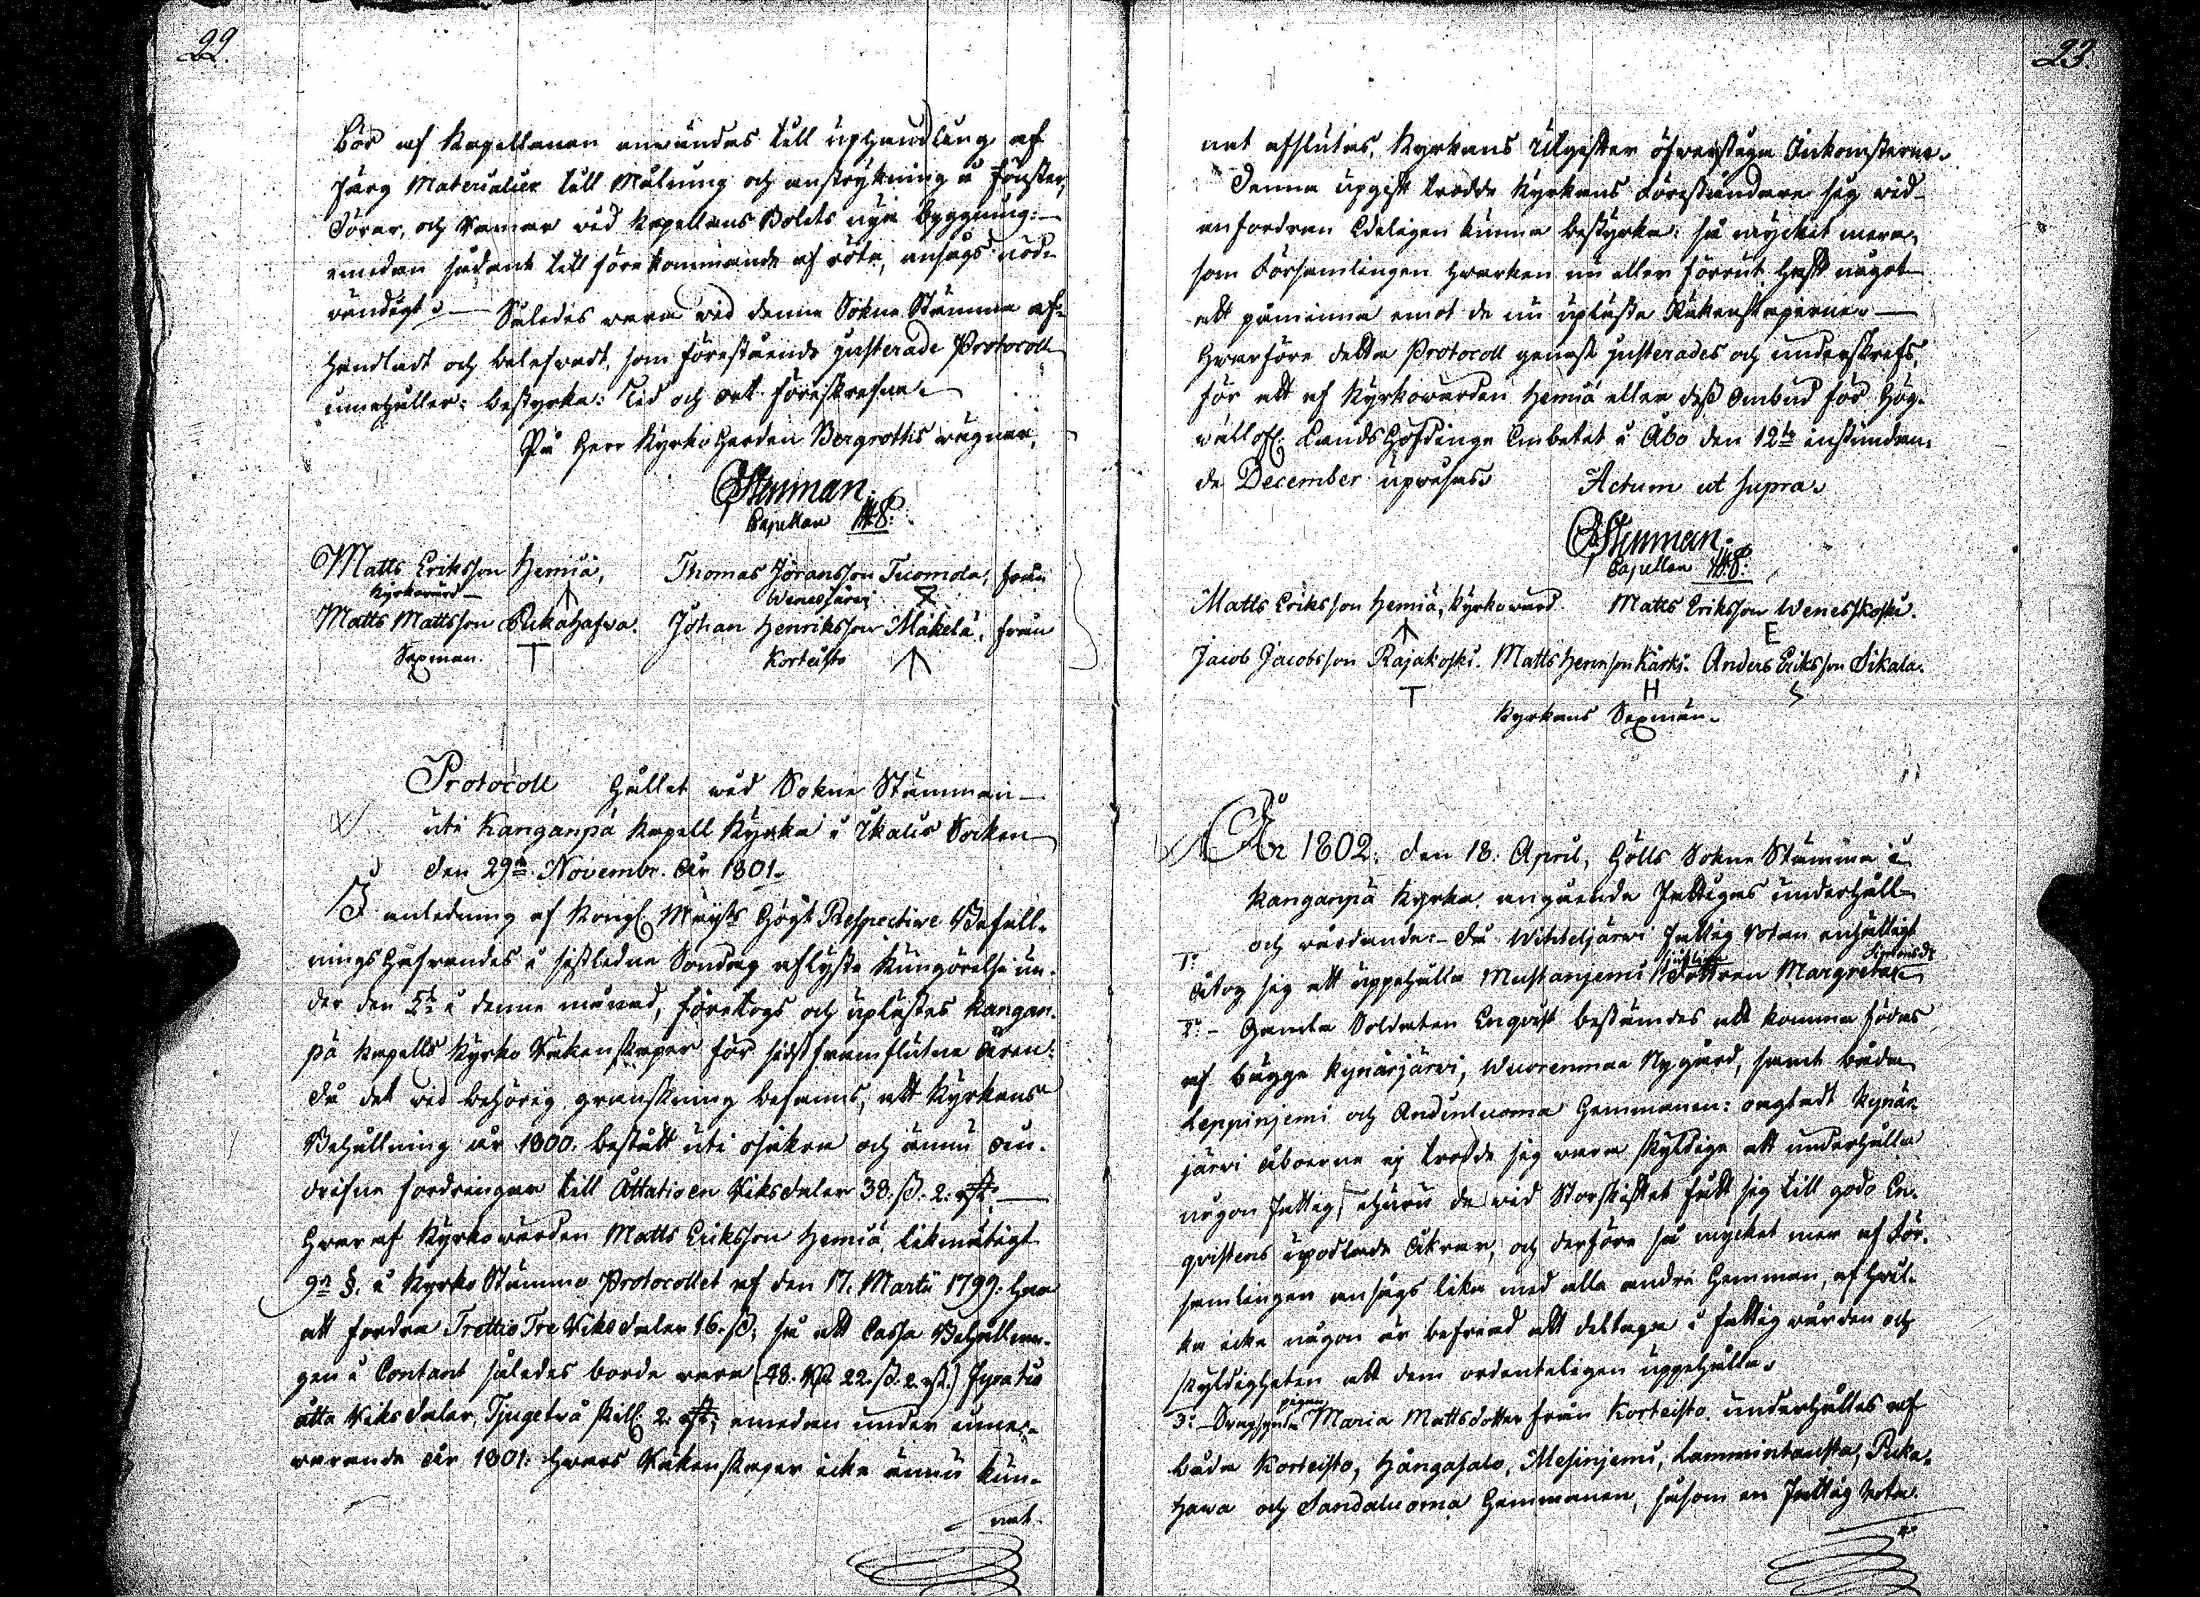 22.
bör af Kapellanen användas till uphandling af
färg Materialier till Målning och anstrykning å Fönster,
Dörar, och Ramar vid Kapellans Bolets nya byggning:
emedan sådant till förekommande af röta, ansågs nöd-
vändigt. Således vara vid denna Sokne Stämma af-
handladt och belefvadt, som förestående justerade Protocoll
innehåller: bestyrka: Tid och ort föreskrefne.
På Herr KyrkoHerden Bergroths vägnar,
Stenman.
Capellan
Matts Eriksson Hemiä, Thomas Jöransson Tuomola, från
Kyrkovärd Wenesjärvi
Matts Mattsson Pukahafva. Johan Henriksson Mäkelä, från
Sexman. T Korteisto
Protocoll hållet vid Sokne Stämman
uti Kanganpä Kapell Kyrka i Ikalis Socken
den 29de Novembr. År 1801.
I anledning af Kongl. Maijts Högt Respective Befall-
ningsHafvandes i sistledne Söndag aflyste Kungörelse un-
der den 5te i denne månad, företogs och uplästes Kangan-
pä Kapells Kyrko Räkenskaper för sidst framflutne åren:
då det vid behörig granskning befanns, att Kyrkans
Behållning år 1800. bestått uti osäkra och ännu oin-
drifne fordringar till Åttatioen Riksdaler 38. ß. 2. rst.
Hvaraf Kyrkovärden Matts Eriksson Hemiä, likmätigt
9n §. i KyrkoStämmo Protocollet af den 17. Martii 1799. har
att fordra TrettioTre Riksdaler 16. ß; så att Cassa Behållnin-
gen i Contant således borde vara (48. Rd 22. ß. 2. rst.) Fyratio
åtta Riksdaler, Tjugetvå skill. 2. rst; emedan under inne-
varande år 1801. hvars Räkenskaper icke ännu kun-
nat
23.
nat afslutas, Kyrkans Utgifter öfverstiga Inkomsterne.
Denna upgift trodde Kyrkans Föreståndare sig vid
anfordran Edeligen kunna bestyrka: så mycket mera,
som Församlingen hvarken nu eller förrut haft något
att påminna emot de nu uplästa Räkenskaperne.
Hvarföre detta Protocoll genast justerades och underskrefs,
för att af Kyrkovärden Hemiä eller dess Ombud för Hög-
vällofl. LandsHöfdinge Embetet i Åbo den 12te instundan-
de December upvisas. Actum ut supra.
Stenman.
Capellan
Matts Eriksson Hemiä, Kyrkovärd. Matts Eriksson Wenesskoski.
E
Jacob Jacobsson Rajakoski. Matts Henrsson Kärki. Anders Eriksson Sikala.
T H S
Kyrkans Sexmän.
År 1802. den 18. April, hölls Sokne Stämma i
Kanganpä Kyrka, angående Fattigas underhåll
och vårdande:- då Wihteljärvi Fattig Rotan enhälligt
1o åtog sig att uppehålla Mustanjemi Margreta Simonsdr
2o - Gamla Soldaten Enqvist bestämdes att komma födas
af bägge Kynäsjärvi, Wuorenmaa Nygård, samt båda
Leppinjemi och Andinluoma Hemmanen: oagtadt Kynäs-
järvi åboerne ej trodde sig vara skyldige att underhålla
någon Fattig, ehuru de vid Storskiftet fått sig till godo En-
qvistens upodlade åkrar, och derföre så mycket mer af För-
samlingen ansågs lika med alla andra Hemman, af hvil-
ka icke någon är befriad att deltaga i Fattigvården och
skyldigheten att dem ordenteligen uppehålla.
3o pigan Maria Mattsdotter från Korteisto underhålles af
båda Korteisto, Hängasalo, Mesinjemi, Lammintausta, Puka-
hawa och Sandaluoma Hemmanen, såsom en Fattig Rota.
4o